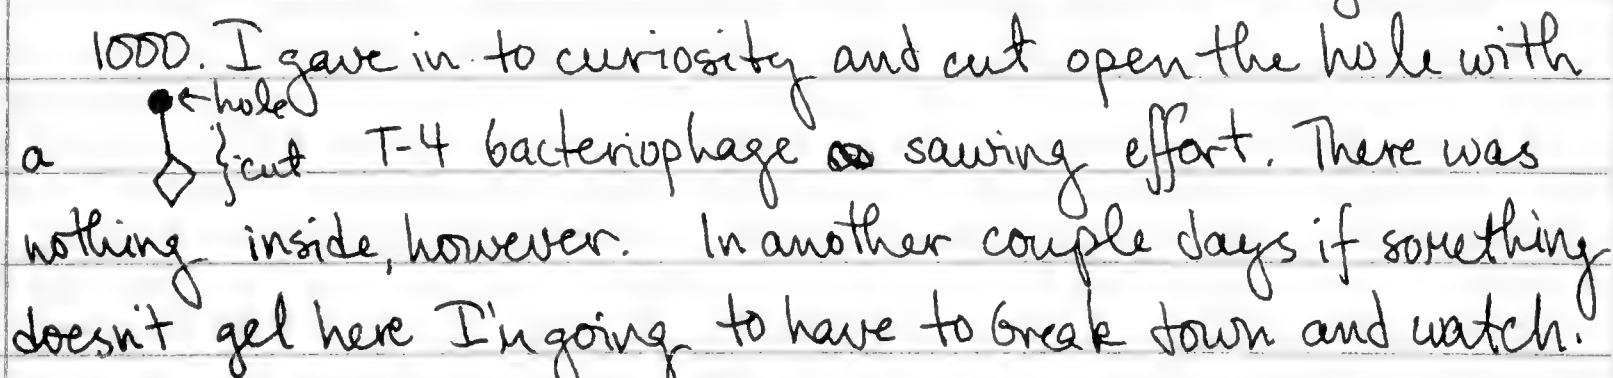 1000. I gave in to curiosity and cut open the hole with
←hole
a }cut T-4 bacteriophage sawing effort. There was
nothing inside, however. In another couple days if something
doesn't gel here I'm going to have to break down and watch.